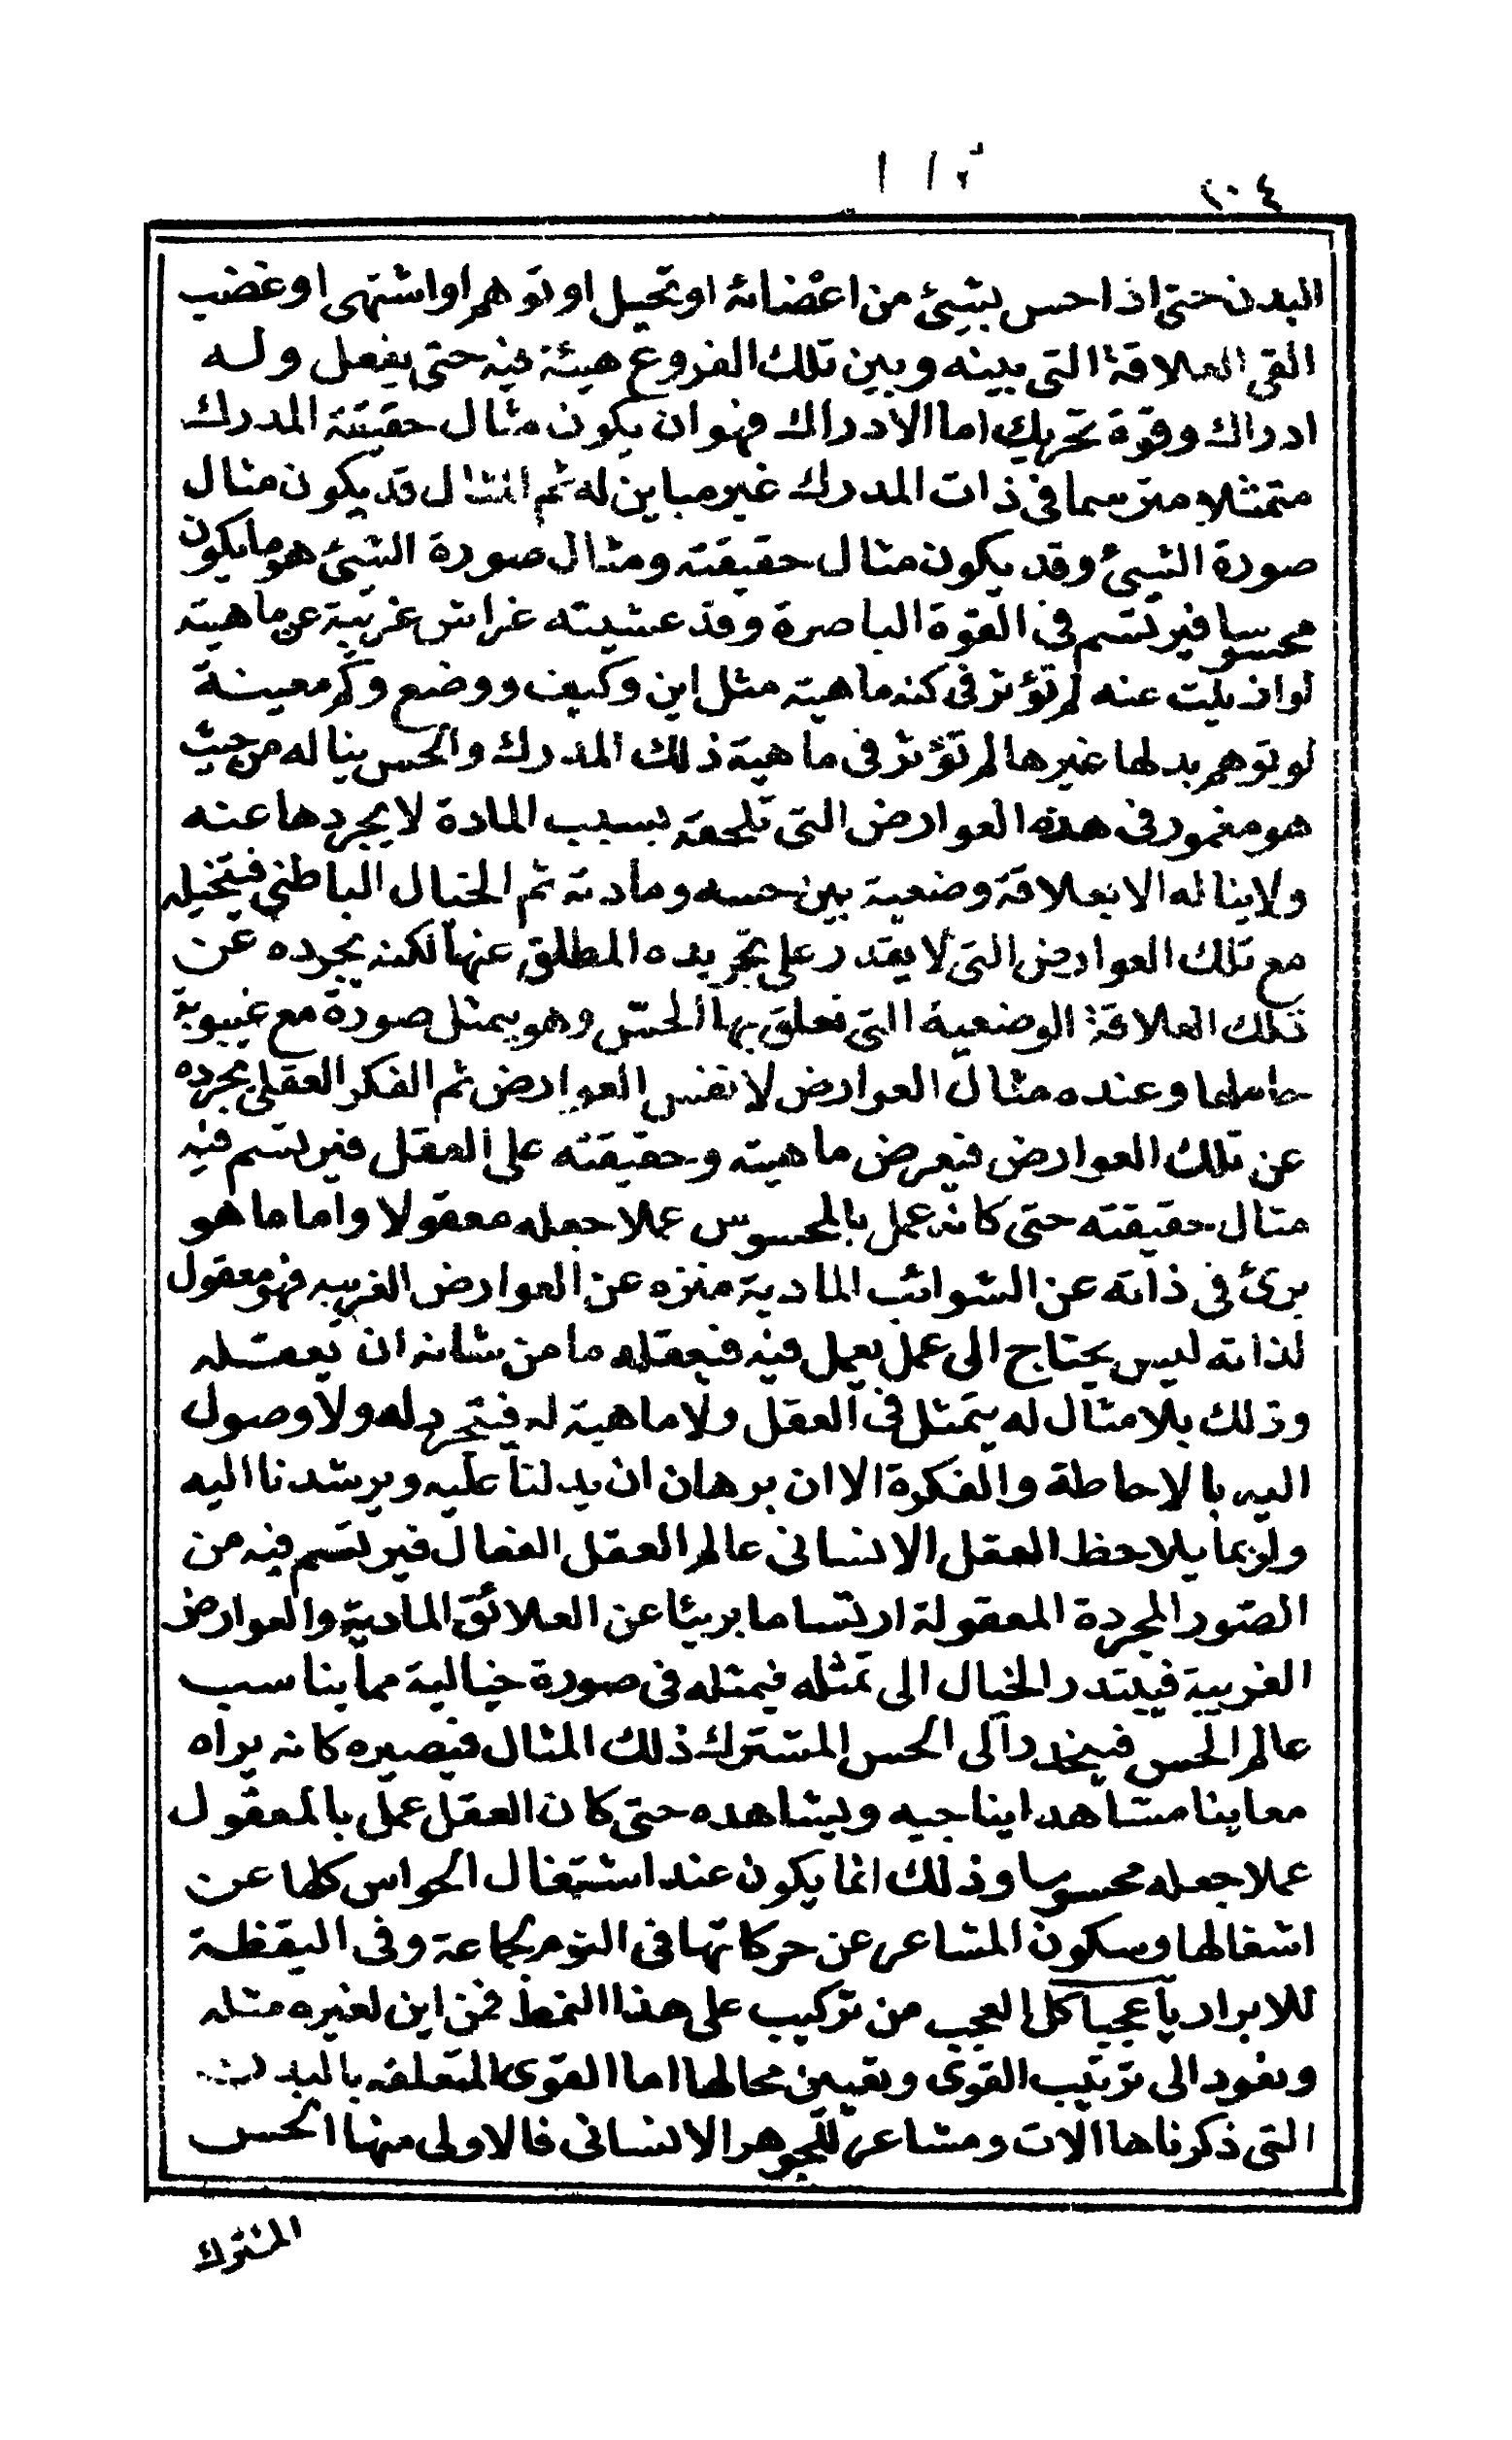 ٢٠٤
البدن حتى اذا احس بشئ من اعضائه او تخيل او توهم او اشتهى او غضب
القى العلاقة التى بينه وبين تلك الفروع هيئة فيه حتى يفعل وله
ادراك وقوة تحريك اما الادراك فهو ان يكون مثال حقيقة المدرك
متمثلا مرتسما فى ذات المدرك غير مباين له ثم المثال قد يكون مثال
صورة الشئ وقد يكون مثال حقيقته ومثال صورة الشئ هو ما يكون
محسوسا فيرتسم فى القوة الباصرة وقد غشيته غواش غريبة عن ماهيته
لو ازيلت عنه لم تؤثر فى كنه ماهيته مثل اين وكيف ووضع وكم معينة
لو توهم بدلها غيرها لم تؤثر فى ماهية ذلك المدرك والحس يناله من حيث
هو مغمور فى هذه العوارض التى تلحقه بسبب المادة لا يجردها عنه
ولا يناله الا بعلاقة وضعية بين حسه ومادته ثم الخيال الباطنى فيتخيله
مع تلك العوارض التى لا يقدر على تجريده المطلق عنها لكنه يجرده عن
تلك العلاقة الوضعية التى تعلق بها الحس وهو يتمثل صورة مع غيبوبة
حاملها وعنده مثال العوارض لا نفس العوارض ثم الفكر العقلى يجرده
عن تلك العوارض فيعرض ماهيته وحقيقته على العقل فيرتسم فيه
مثال حقيقته حتى كانه عمل بالمحسوس عملا جعله معقولا واما ما هو
برئ فى ذاته عن الشوائب المادية منزه عن العوارض الغريبه فهو معقول
لذاته ليس يحتاج الى عمل يعمل فيه فيعقله ما من شانه ان يعقله
وذلك بلا مثال له يتمثل فى العقل ولا ماهية له فيتجرد له ولا وصول
اليه بالاحاطة والفكرة الا ان برهان ان يدلنا عليه ويرشدنا اليه
ولربما يلاحظ العقل الانسانى عالم العقل الفعال فيرتسم فيه من
الصور المجردة المعقولة ارتساما بريئا عن العلائق المادية والعوارض
الغريبة فيبتدر الخيال الى تمثله فيمثله فى صورة خيالية مما يناسب
عالم الحس فينحدر الى الحس المشترك ذلك المثال فيصيره كانه يراه
معاينا مشاهدا يناجيه ويشاهده حتى كان العقل عمل بالمعقول
عملا جعله محسوسا وذلك انما يكون عند اشتغال الحواس كلها عن
اشغالها وسكون المشاعر عن حركاتها فى النوم لجماعة وفى اليقظة
للابرار يا عجبا كل العجب من تركيب على هذا النمط فمن اين لغيره مثله
ونعود الى ترتيب القوى وتعيين محالها اما القوى المتعلقه بالبدن
التى ذكرناها الات ومشاعر للجوهر الانسانى فالاولى منها الحس
المشترك